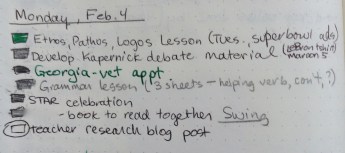 Monday, Feb. 4
Ethos, Pathos, Logos Lesson (Tues., superbowl ads)
Develop Kapernick debate material (maroon 5
Georgia-vet appt
Grammar lesson (3 sheets - helping verb, con't, ?)
STAR celebration
- book to read together Swing
teacher research blog post